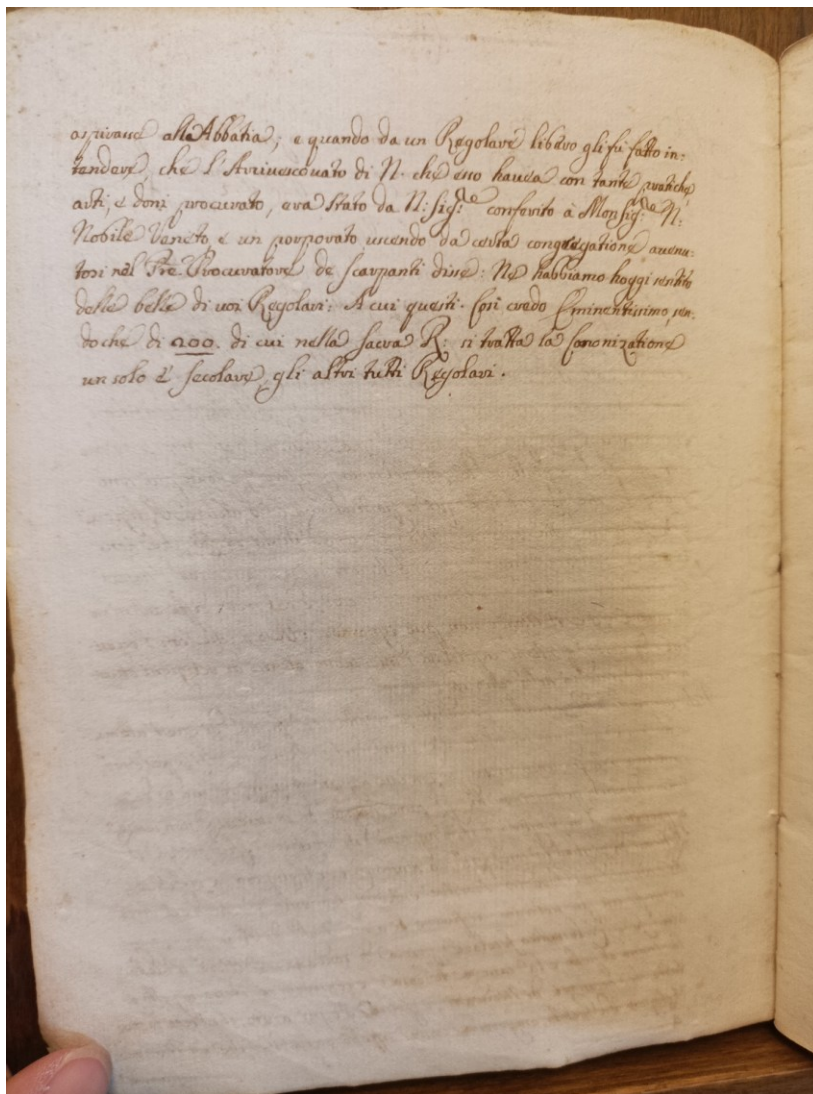 aspirasse alla Abbatia; e quando da un Regolare libero gli fu fatto in:
tendere, che l'Arcivescovato di N. che esso havea con tante pratiche
arti, e doni procurato, era stato da N: Sig:re conferito à Monsig:re N:
Nobile Veneto, e un porporato uscendo da certa congregatione avenu:
tosi nel Pre. Procuratore de scarpanti disse: Ne habbiamo hoggi sentito
delle belle di voi Regolari: A cui questi. Così credo Eminentissimo, sen:
do che di 200. di cui nella sacra R: si tratta la Canonizatione
un solo è secolare, gli altri tutti Regolari.